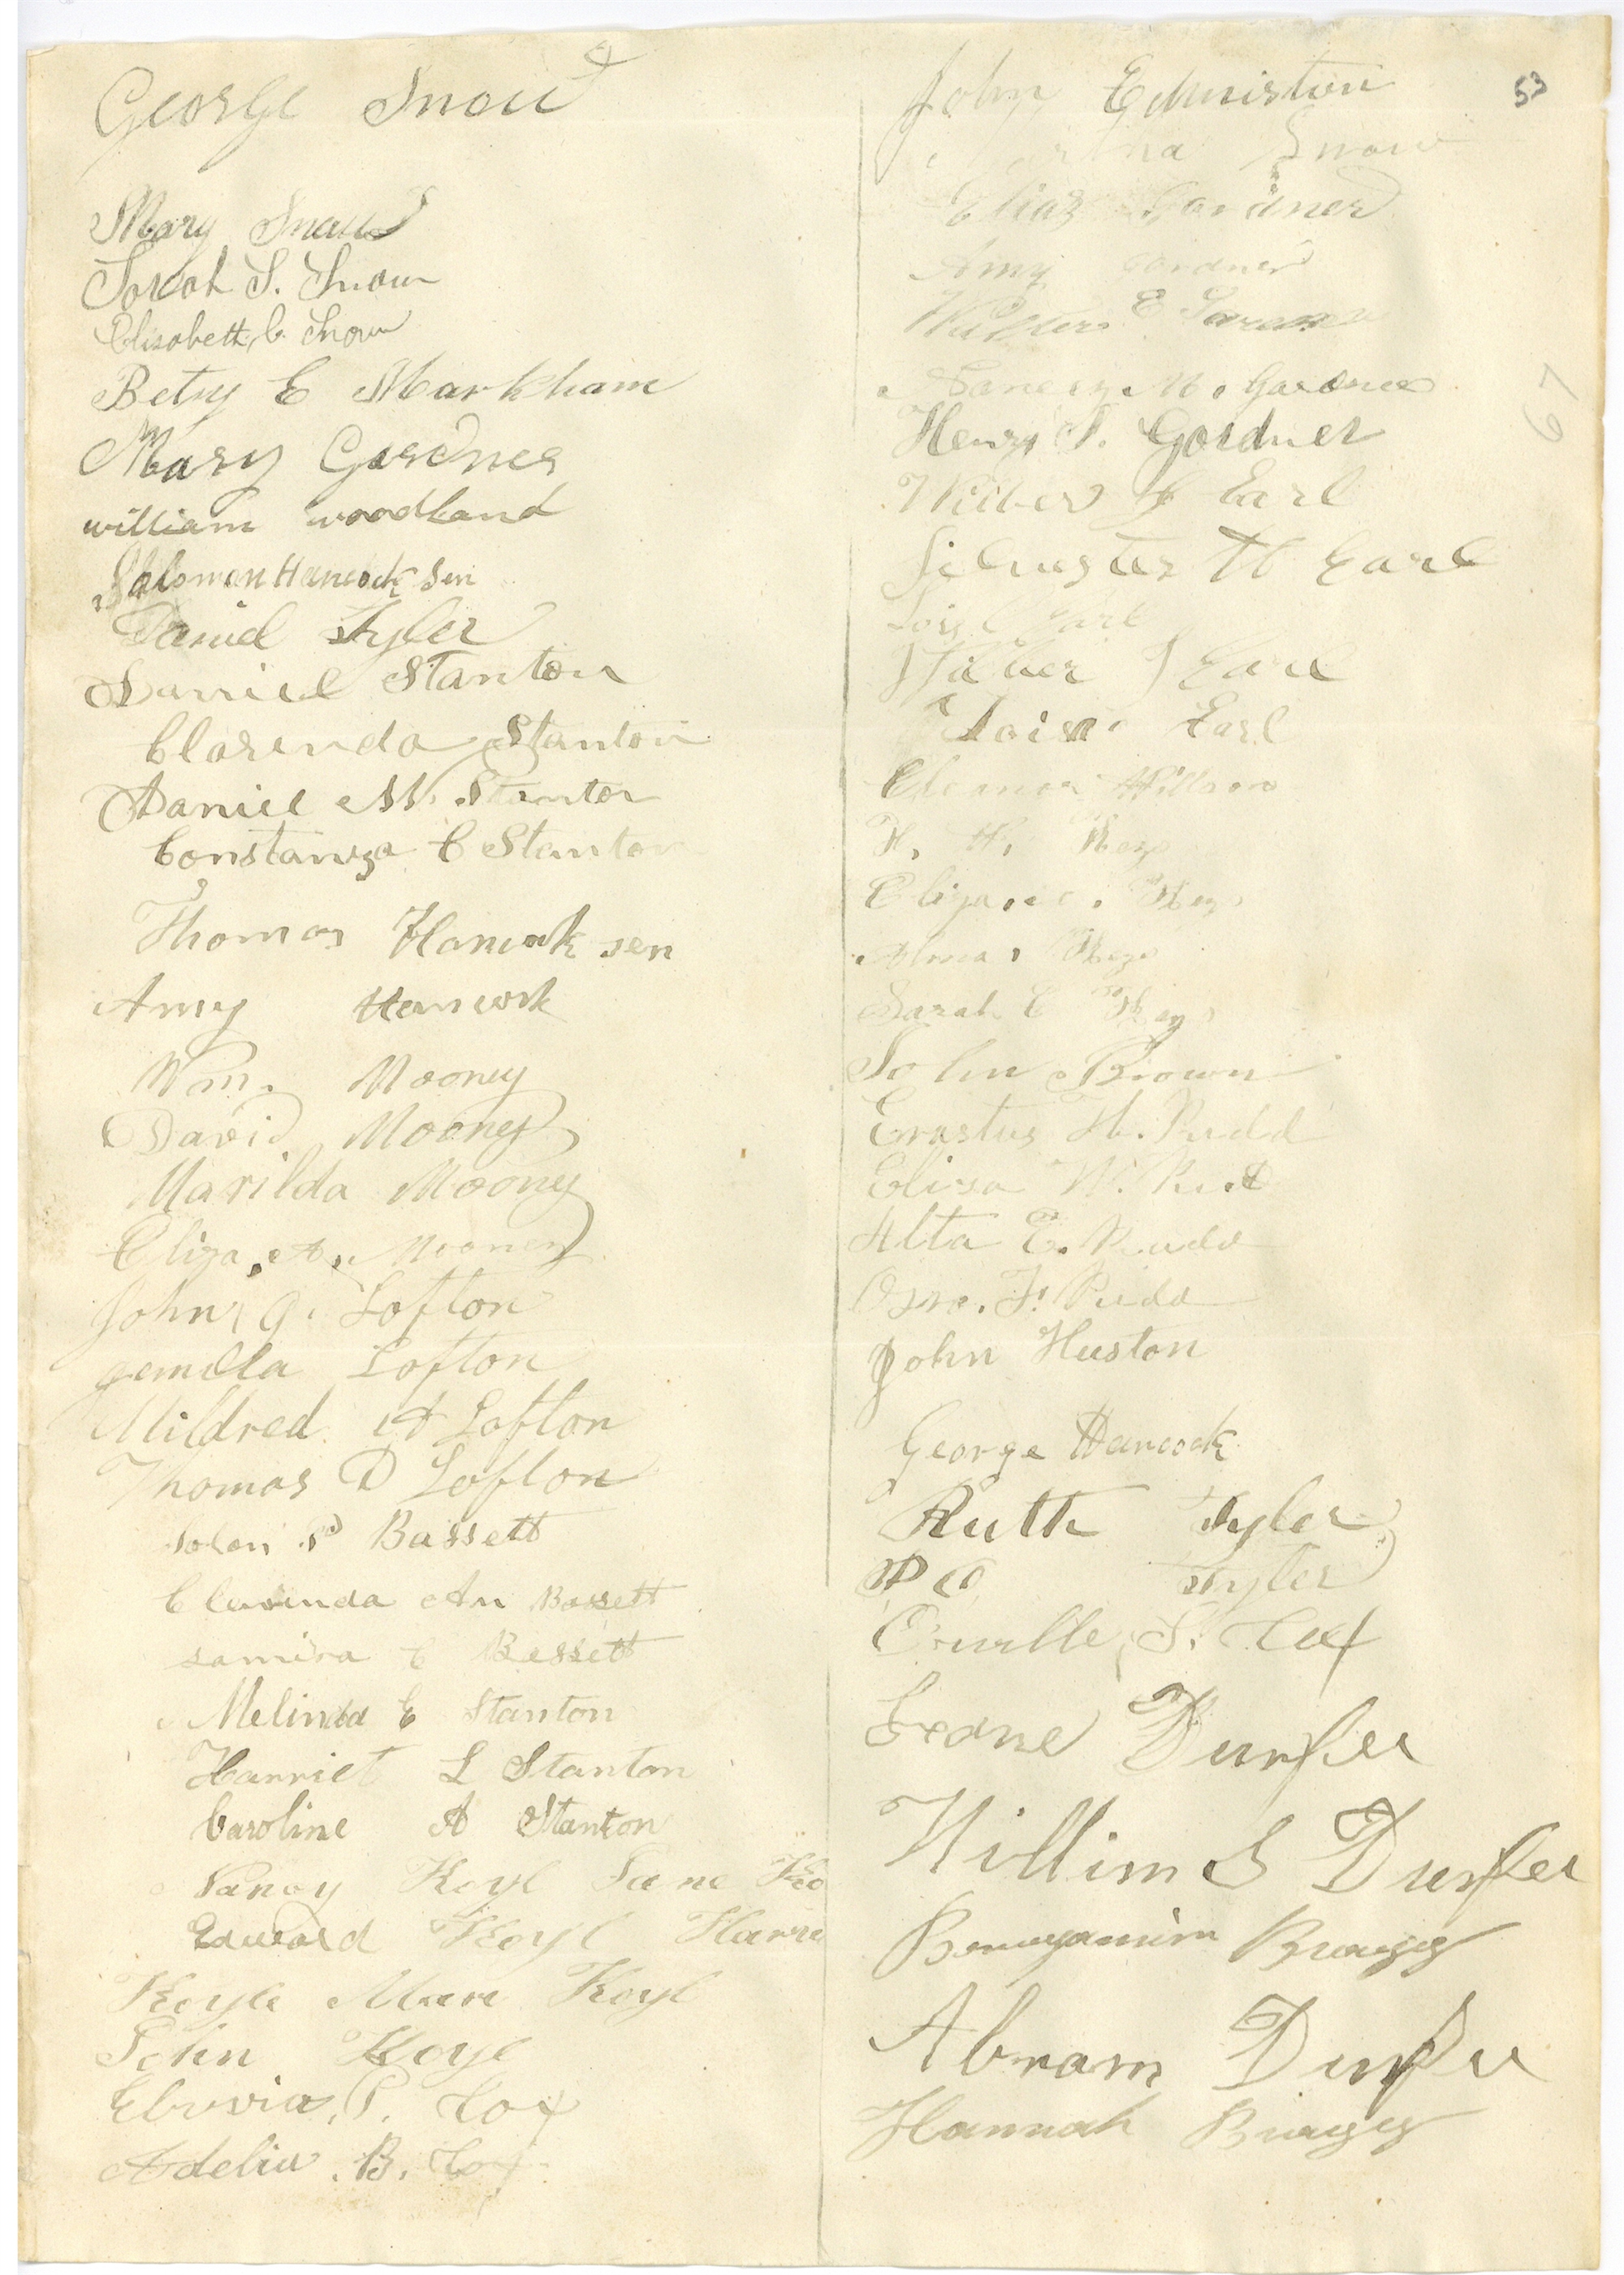 George Snow
Mary Snow
Sarah S. Snow
Elisabeth C. Snow
Betsy E Markham
Mary Gardner
william woodland
Solomon Hancock Sen
Daniel Tyler
Daniel Stanton
Clarinda Stanton
Daniel W. Stanton
Constanza C Stanton
Thomas Hancock sen
Amy Hancock
Wm. Mooney
David Mooney
Marilda Mooney
Eliza An Mooney
John G. Lofton
Jemilla Lofton
Mildred A Lofton
Thomas D Lofton
Solon P Bassett
Clarinda An Bassett
Samira C Bassett
Melinda E Stanton
Harriet L Stanton
Caroline A Stanton
Nancy Koyl Jane Ko
Edward Koyl Harri
Koyle Koyl
John Koyl
Elvina P. Cox
Adelia B. Cox
53
67
John Edmiston
Snow
Elias Gardner
Amy Gardner
Walter E
M. Gardner
Henry S. Gardner
Wilber J Earl
Silvester H Earl
Earl
Wilber J Earl
Loisa Earl
Elenor Willson
H. H.
Sarah E
John Brown
Erastus H. Rudd
Eliza W. Rudd
Alta E. Rudd
F. Rudd
John Huston
George Hancock
Ruth Tyler
P O Tyler
Orville S. Cox
Durfee
Willim S Durfee
Bengamin Bragg
Abram Durfee
Hannah Bragg